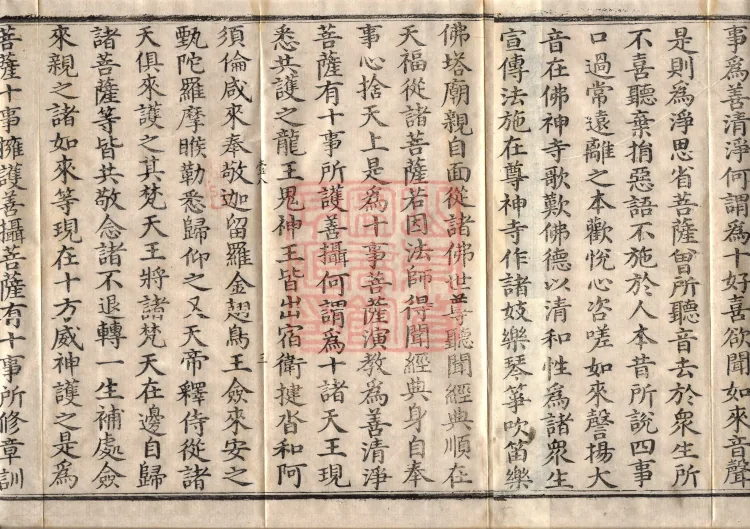 事爲善清淨何謂爲十好喜欲聞如來音聲
是則爲淨思省菩薩曾所聽音去於衆生所
不喜聽棄捐惡語不施於人本昔所說四事
口過常遠離之本歡悅心咨嗟如來聲揚大
音在佛神寺歌歎佛德以清和性爲諸衆生
宣傳法施在尊神寺作諸妓樂琴箏吹笛樂
佛塔廟親自面從諸佛世尊聽聞經典順在
天福從諸菩薩若因法師得聞經典身自奉
事心捨天上是爲十事菩薩演教爲善清淨
菩薩有十事所護善攝何謂爲十諸天王現
悉共護之龍王鬼神王皆出宿衛揵沓和阿
須倫咸來奉敬迦留羅金翅鳥王僉來安之
甄陀羅摩睺勒悉歸仰之又天帝釋侍從諸
天俱來護之其梵天王將諸梵天在邊自歸
諸菩薩等皆共敬念諸不退轉一生補處僉
來親之諸如來等現在十方威神護之是爲
菩薩十事擁護善攝菩薩有十事所修章訓